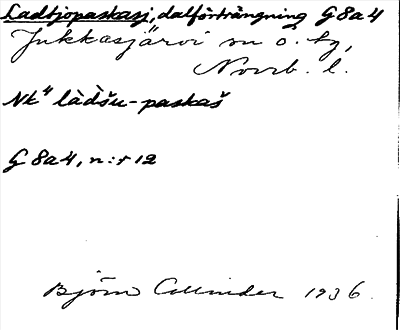 Ladtjopaskasj, dalförträngning G8a4
Jukkasjärvi sn o. tg,
Norrb. l.
Nk" làd̀šu-paskaš
G 8a4, n:r 12
Björn Collinder 1936.